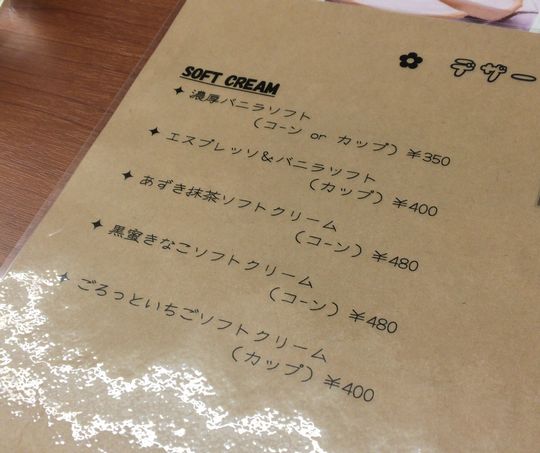 デザー
SOFT CREAM
濃厚バニラソフト
(コーン or カップ) ¥350
エスプレッソ&バニラソフト
(カップ) ¥400
あずき抹茶ソフトクリーム
(コーン) ¥480
黒蜜きなこソフトクリーム
(コーン) ¥480
ごろっといちごソフトクリーム
(カップ) ¥400